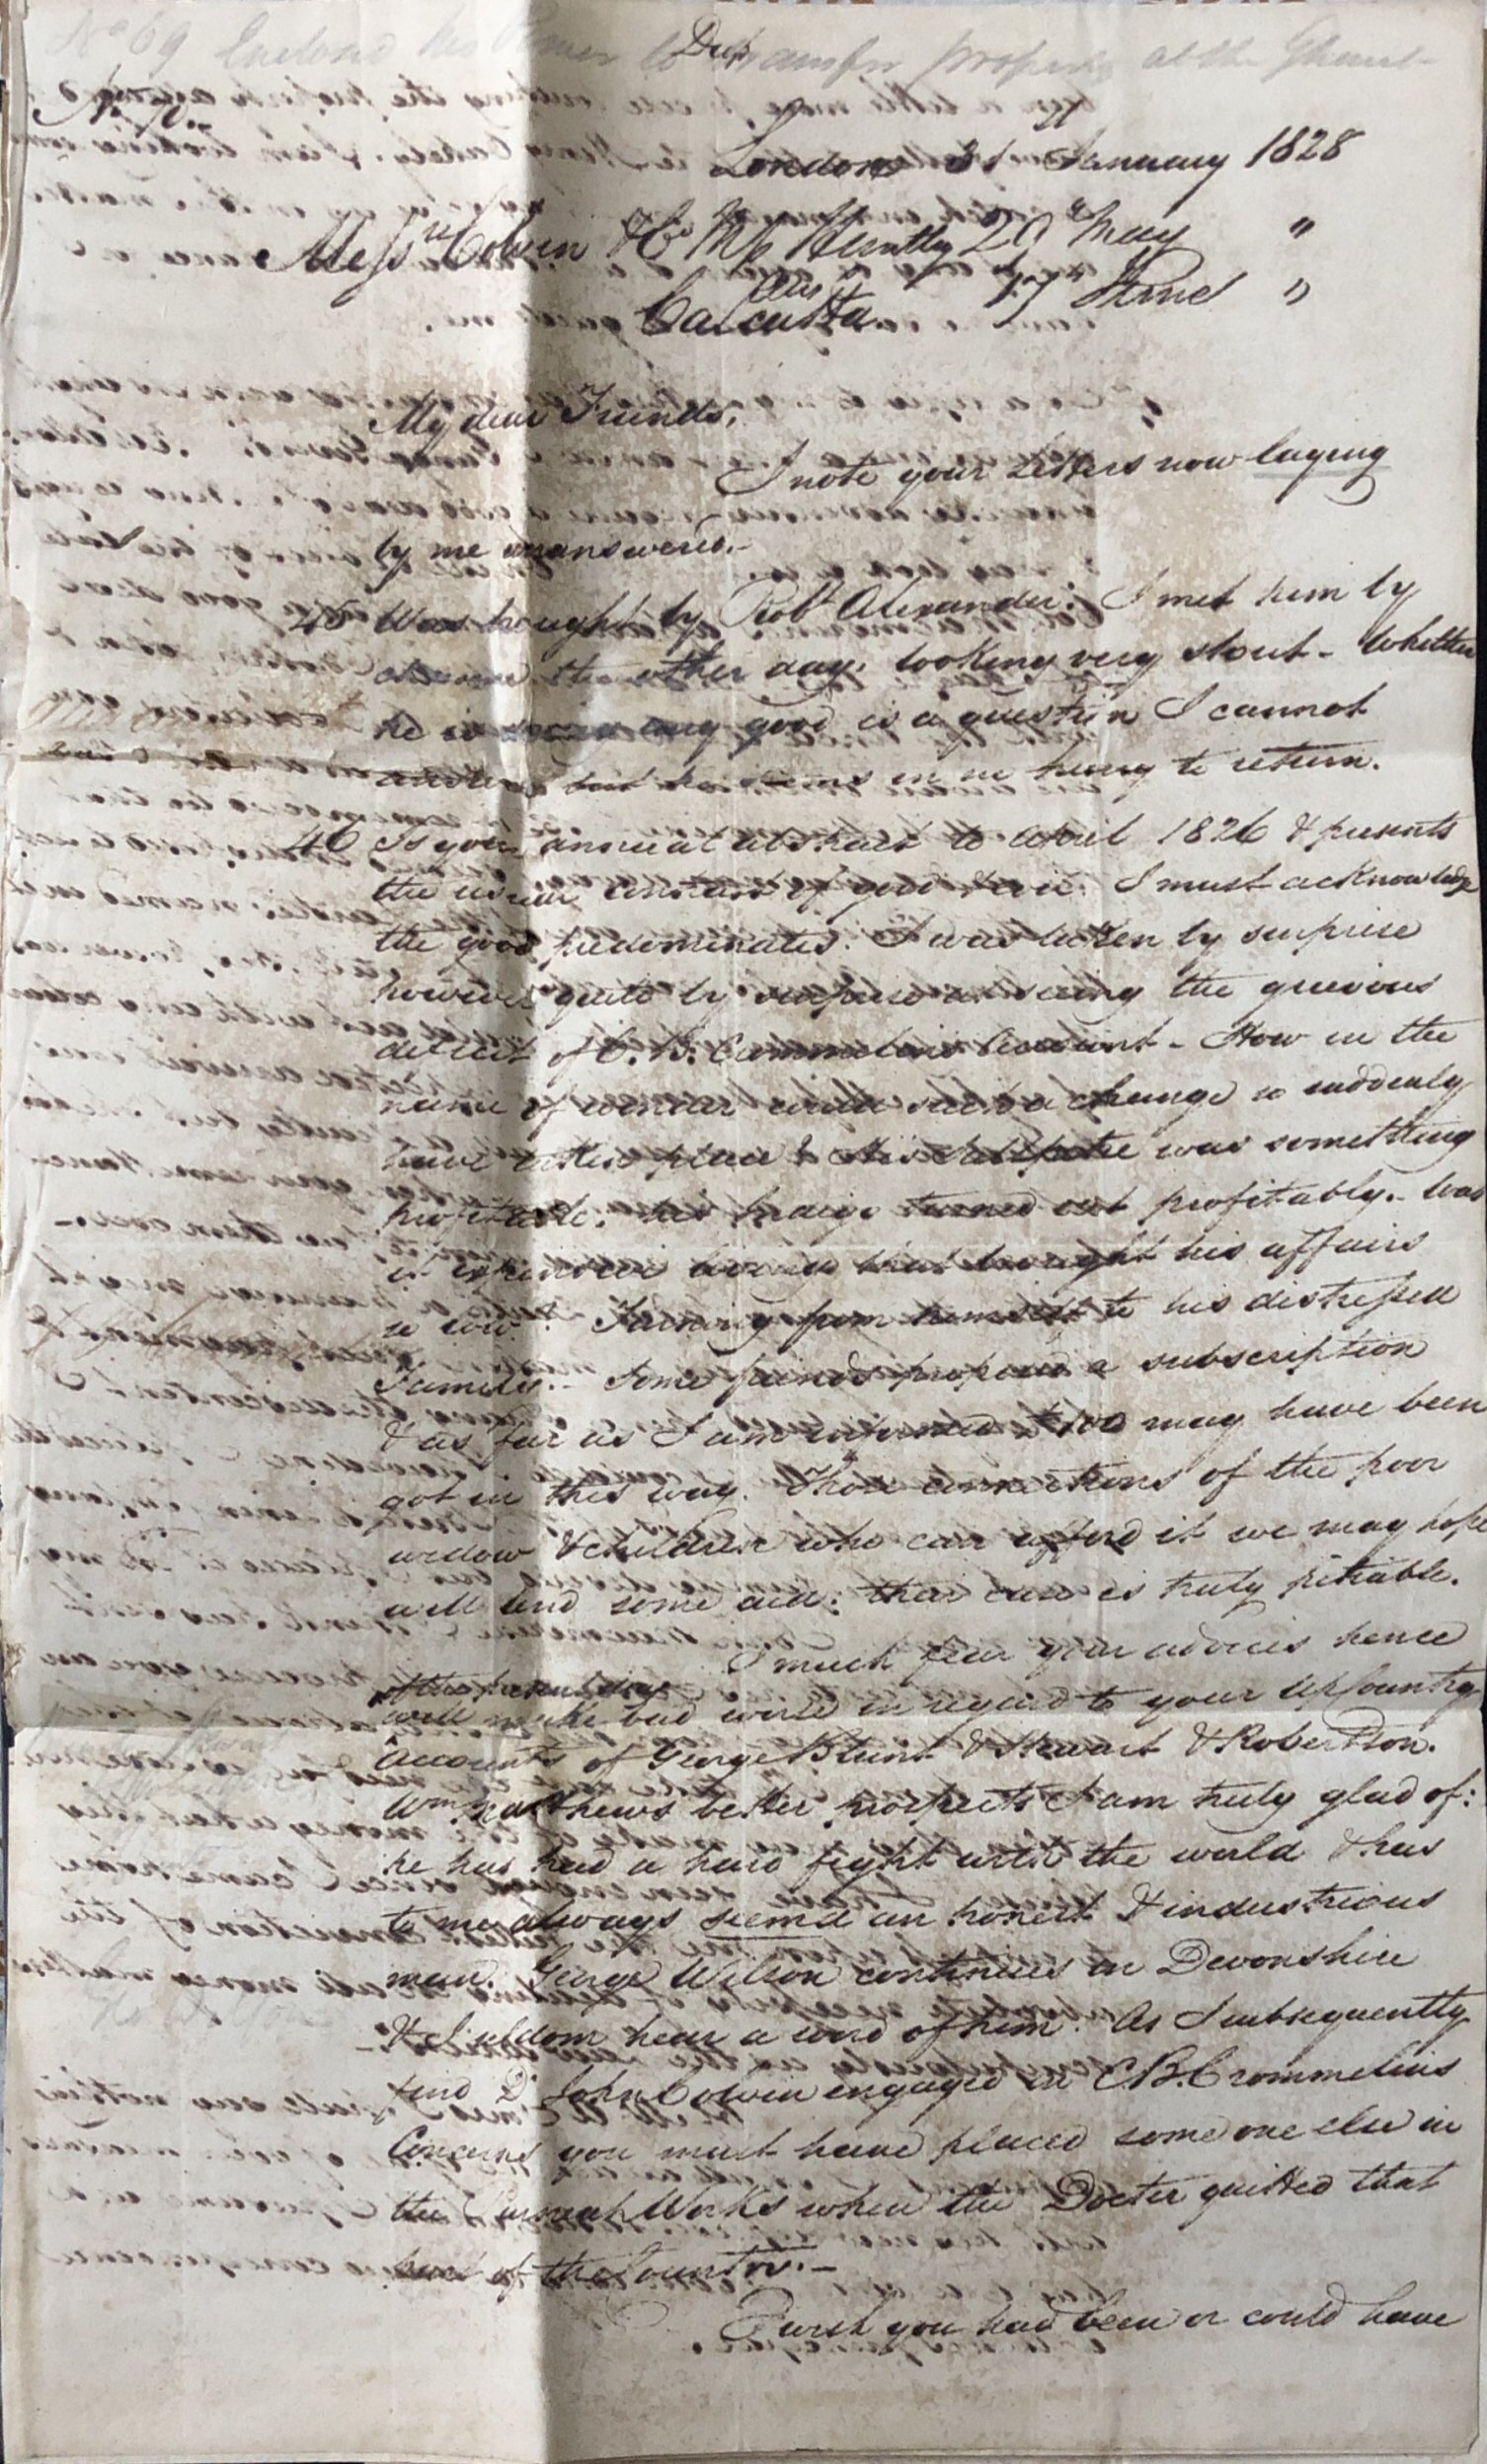 No 69 Enclosed his Power to transfer property at the
Dup
No 70.-
London 31 January 1828
Messrs Colvin & Co P Huntley 20 May "
Calcutta 17 June "
My dear Friends,
I note your Letters now laying
by me unanswered.-
45 Was brought by Robt Alexander: I met him by
chance the other day, looking very stout - Whether
he is doing any good is a question I cannot
answer but he seems in no hurry to return.
46 Is your annual abstract to April 1826 & presents
the usual contrast of good & evil: I must acknowledge
the good predominates. I was taken by surprise
however quite by surprise at seeing the grievous
deficit of C. B. Crommelins Account - How in the
name of wonder could such a change so suddenly
have taken place? His was something
profitable. his Indigo turned out profitably. - Was
it expensive living that brought his affairs
so low? Turning from himself to his distressed
Family. - Some friends proposed a subscription
& as far as I am informed £100 may have been
got in this way. Those connections of the poor
widow & children who can afford it we may hope
will lend some aid: their case is truly pitiable.
I much fear your advices hence
of the present day
will make bad worse in regard to your Up Country
Accounts of George Blunt & Stewart & Robertson.
Wm Mathews better prospects I am truly glad of:
he has had a hard fight with the world & has
to me always seemed an honest & industrious
man. George Wilson continues in Devonshire
& I seldom hear a word of him. As I subsequently
find Dr John Colvin engaged in C B. Crommelins
Concerns you must have placed some one else in
the Purneah Works when the Doctor quitted that
part of the Country. -
I wish you had been or could have